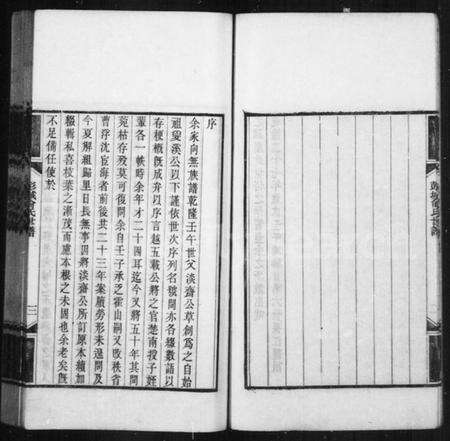 序
余家向無族譜乾隆壬午世父淡齋公草創為之自始
祖愛溪公以下謹依世次序列名號間亦各綴數語以
存梗概旣成弁以序言越五載公將之官楚南授子姪
輩各一帙時余年才二十四耳迄今又將五十年其間
菀枯存歿莫可復問余自壬子承乏霍山嗣又改秩省
曹浮沈宦海者前後共二十三年案牘勞形未遑問及
今夏解組歸里日長無事因將淡齋公所訂原本續加
綴輯私喜枝葉之漸茂而慮本根之未固也余老矣旣
不足備任使於
彭城 氏世譜
三
彭城 氏世譜